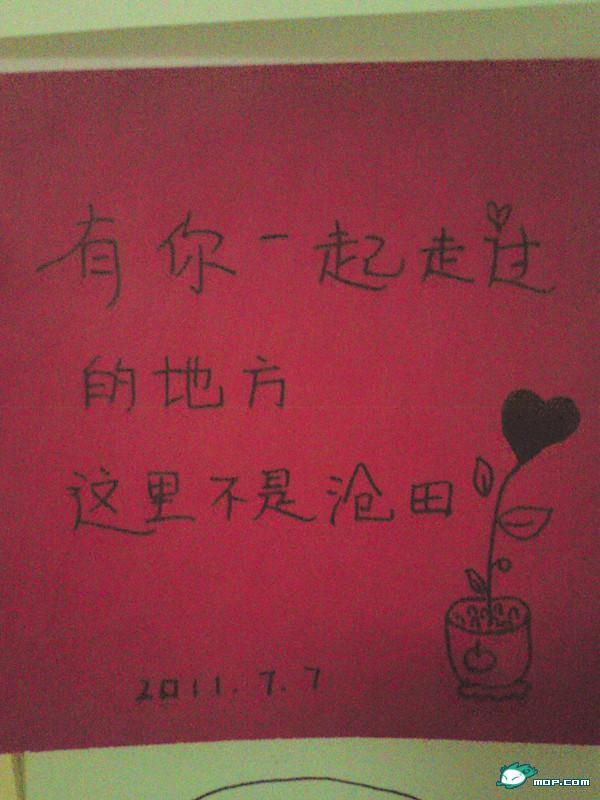 有你一起走过
的地方
这里不是沧田
2011.7.7
MOP.COM